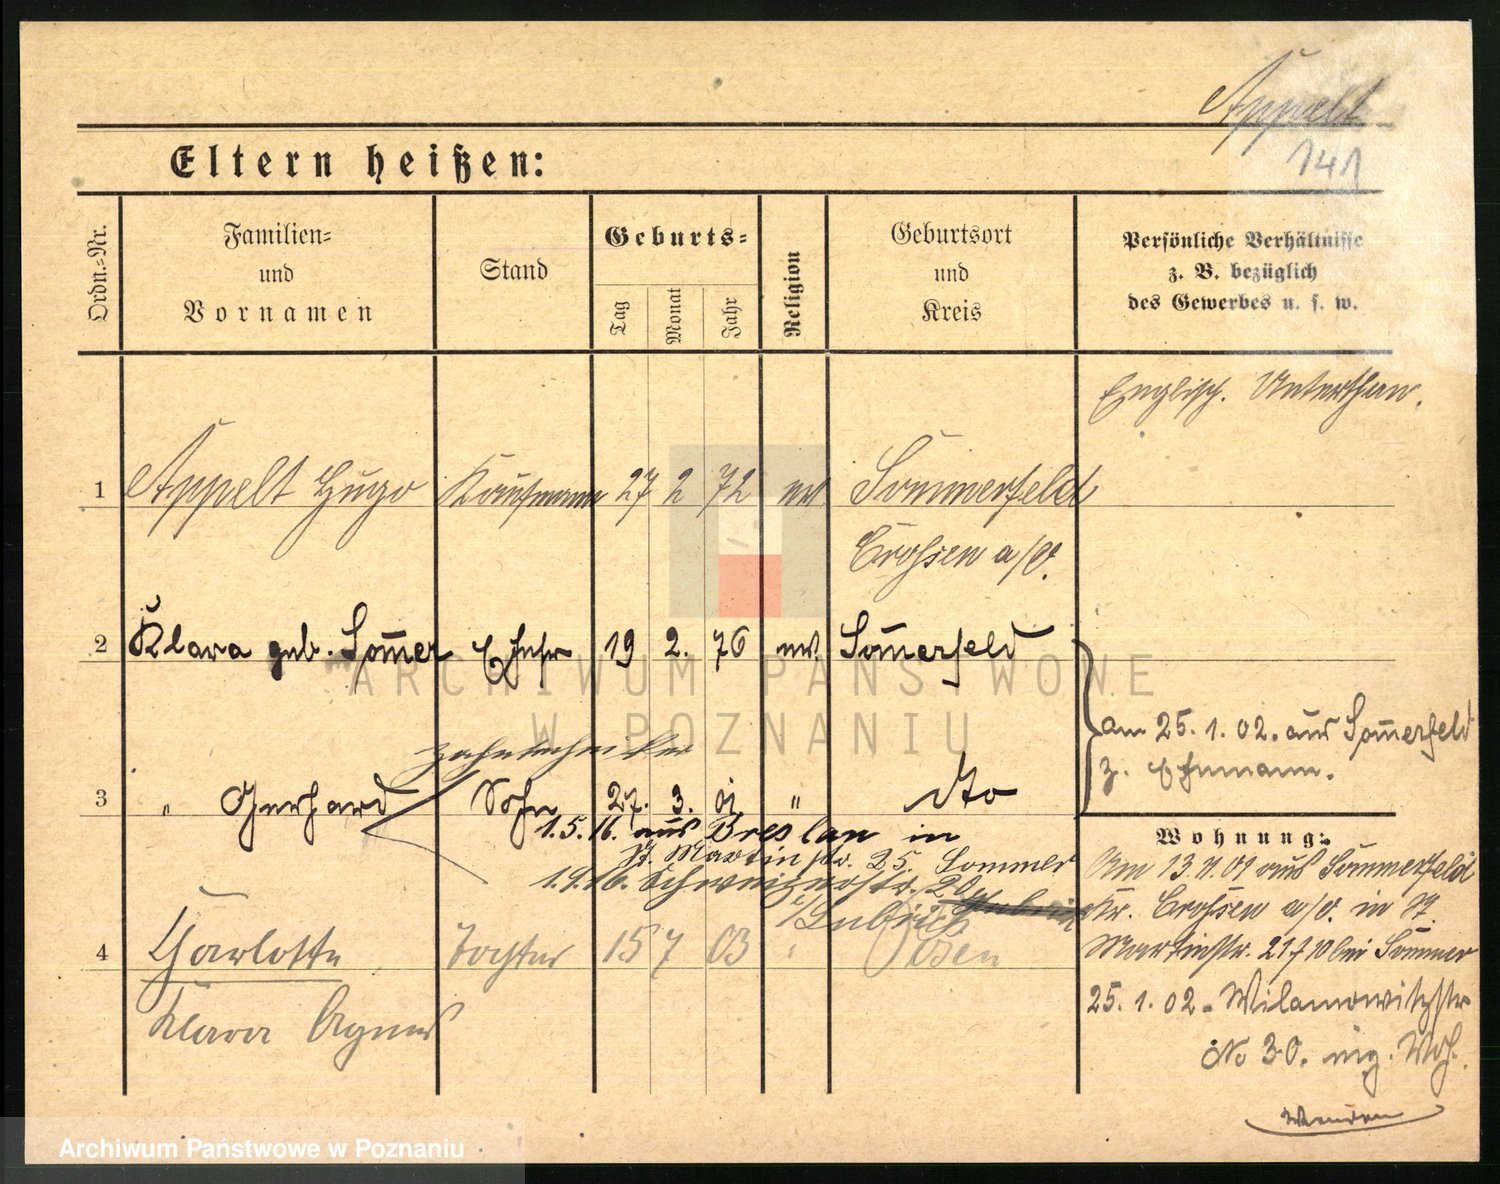 Appelt
141
Eltern heißen:
Ordn.-Nr.
Familien-
und
Vornamen
Stand
Geburts-
Tag
Monat
Jahr
Religion
Geburtsort
und
Kreis
Persönliche Verhältnisse
z. B. bezüglich
des Gewerbes u. s. w.
Englisch. Unterthan.
1 Appelt Hugo Kaufmann 27 2 72 ev Sommerfeld
Crossen a/O.
2 Klara geb. Som̄er Ehefr 19 2. 76 ev. Som̄erfeld
am 25. 1. 02. aus Som̄erfeld
z. Ehemann.
Zahntechniker
3 " Gerhard Sohn 27. 3. 01 " dto
1.5.16. aus Breslau in
St. Martinstr. 25. Sommer
1.9.16. Schweizerstr. 20
b/Lubrich
Wohnung:
Am 13.4.01 aus Som̄merfeld
Kr. Crossen a/O. in St.
Martinstr. 21 bei Som̄mer
25. 1. 02 - Wilamowitzstr
No 30. eig. Woh.
4 Charlotte Tochter 15 7 03 Posen
Klara Agnes
ARCHIWUM PAŃSTWOWE
W POZNANIU
Archiwum Państwowe w Poznaniu